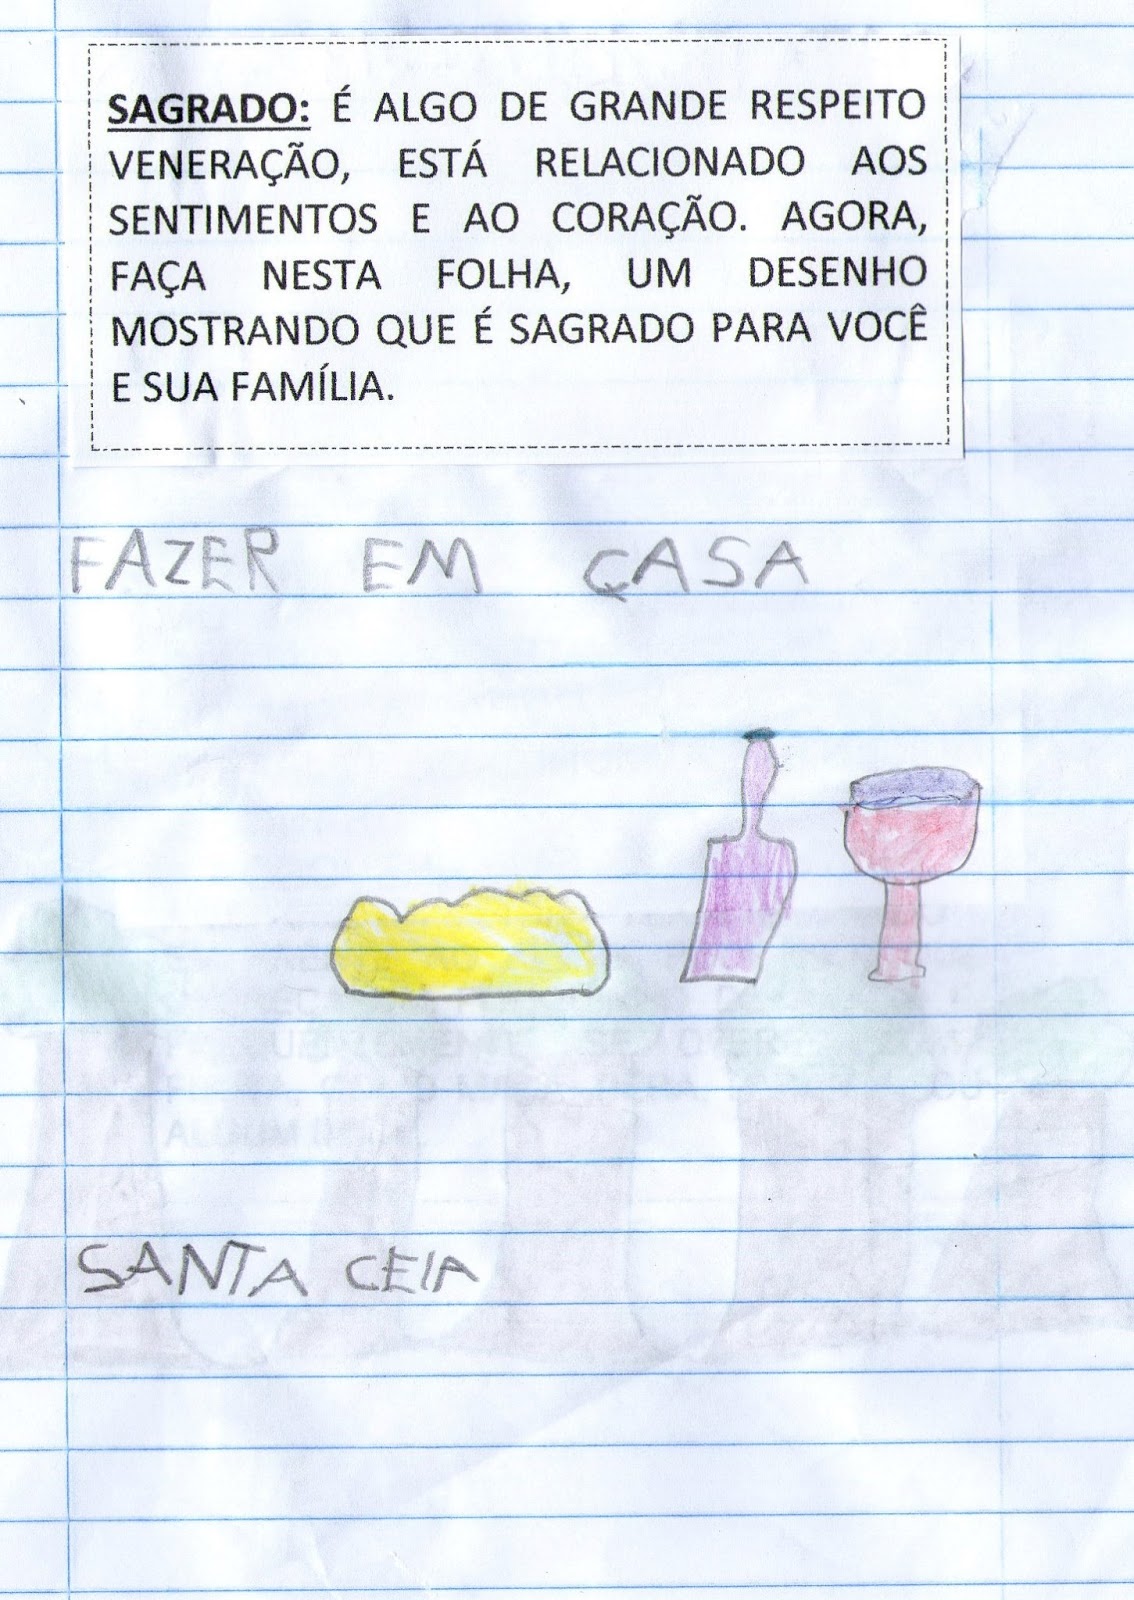 SAGRADO: É ALGO DE GRANDE RESPEITO
VENERAÇÃO, ESTÁ RELACIONADO AOS
SENTIMENTOS E AO CORAÇÃO. AGORA,
FAÇA NESTA FOLHA, UM DESENHO
MOSTRANDO QUE É SAGRADO PARA VOCÊ
E SUA FAMÍLIA.
FAZER EM ÇASA
SANTA CEIA